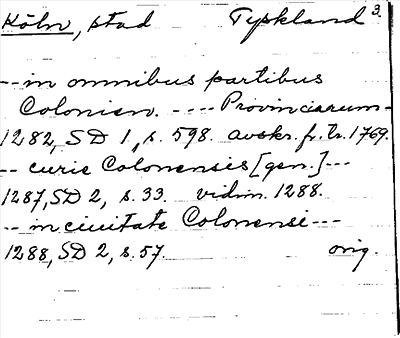 Köln, stad Tyskland 3.
--in omnibus partibus
Colonien. ---- Provinciarum-
1282, SD 1, s. 598. avskr. fr. tr. 1769.
-- curie Colonensis [gen.]---
1287, SD 2, s. 33. vidim. 1288.
-- in ciuitate Colonensi---
1288, SD 2, s. 57. orig.